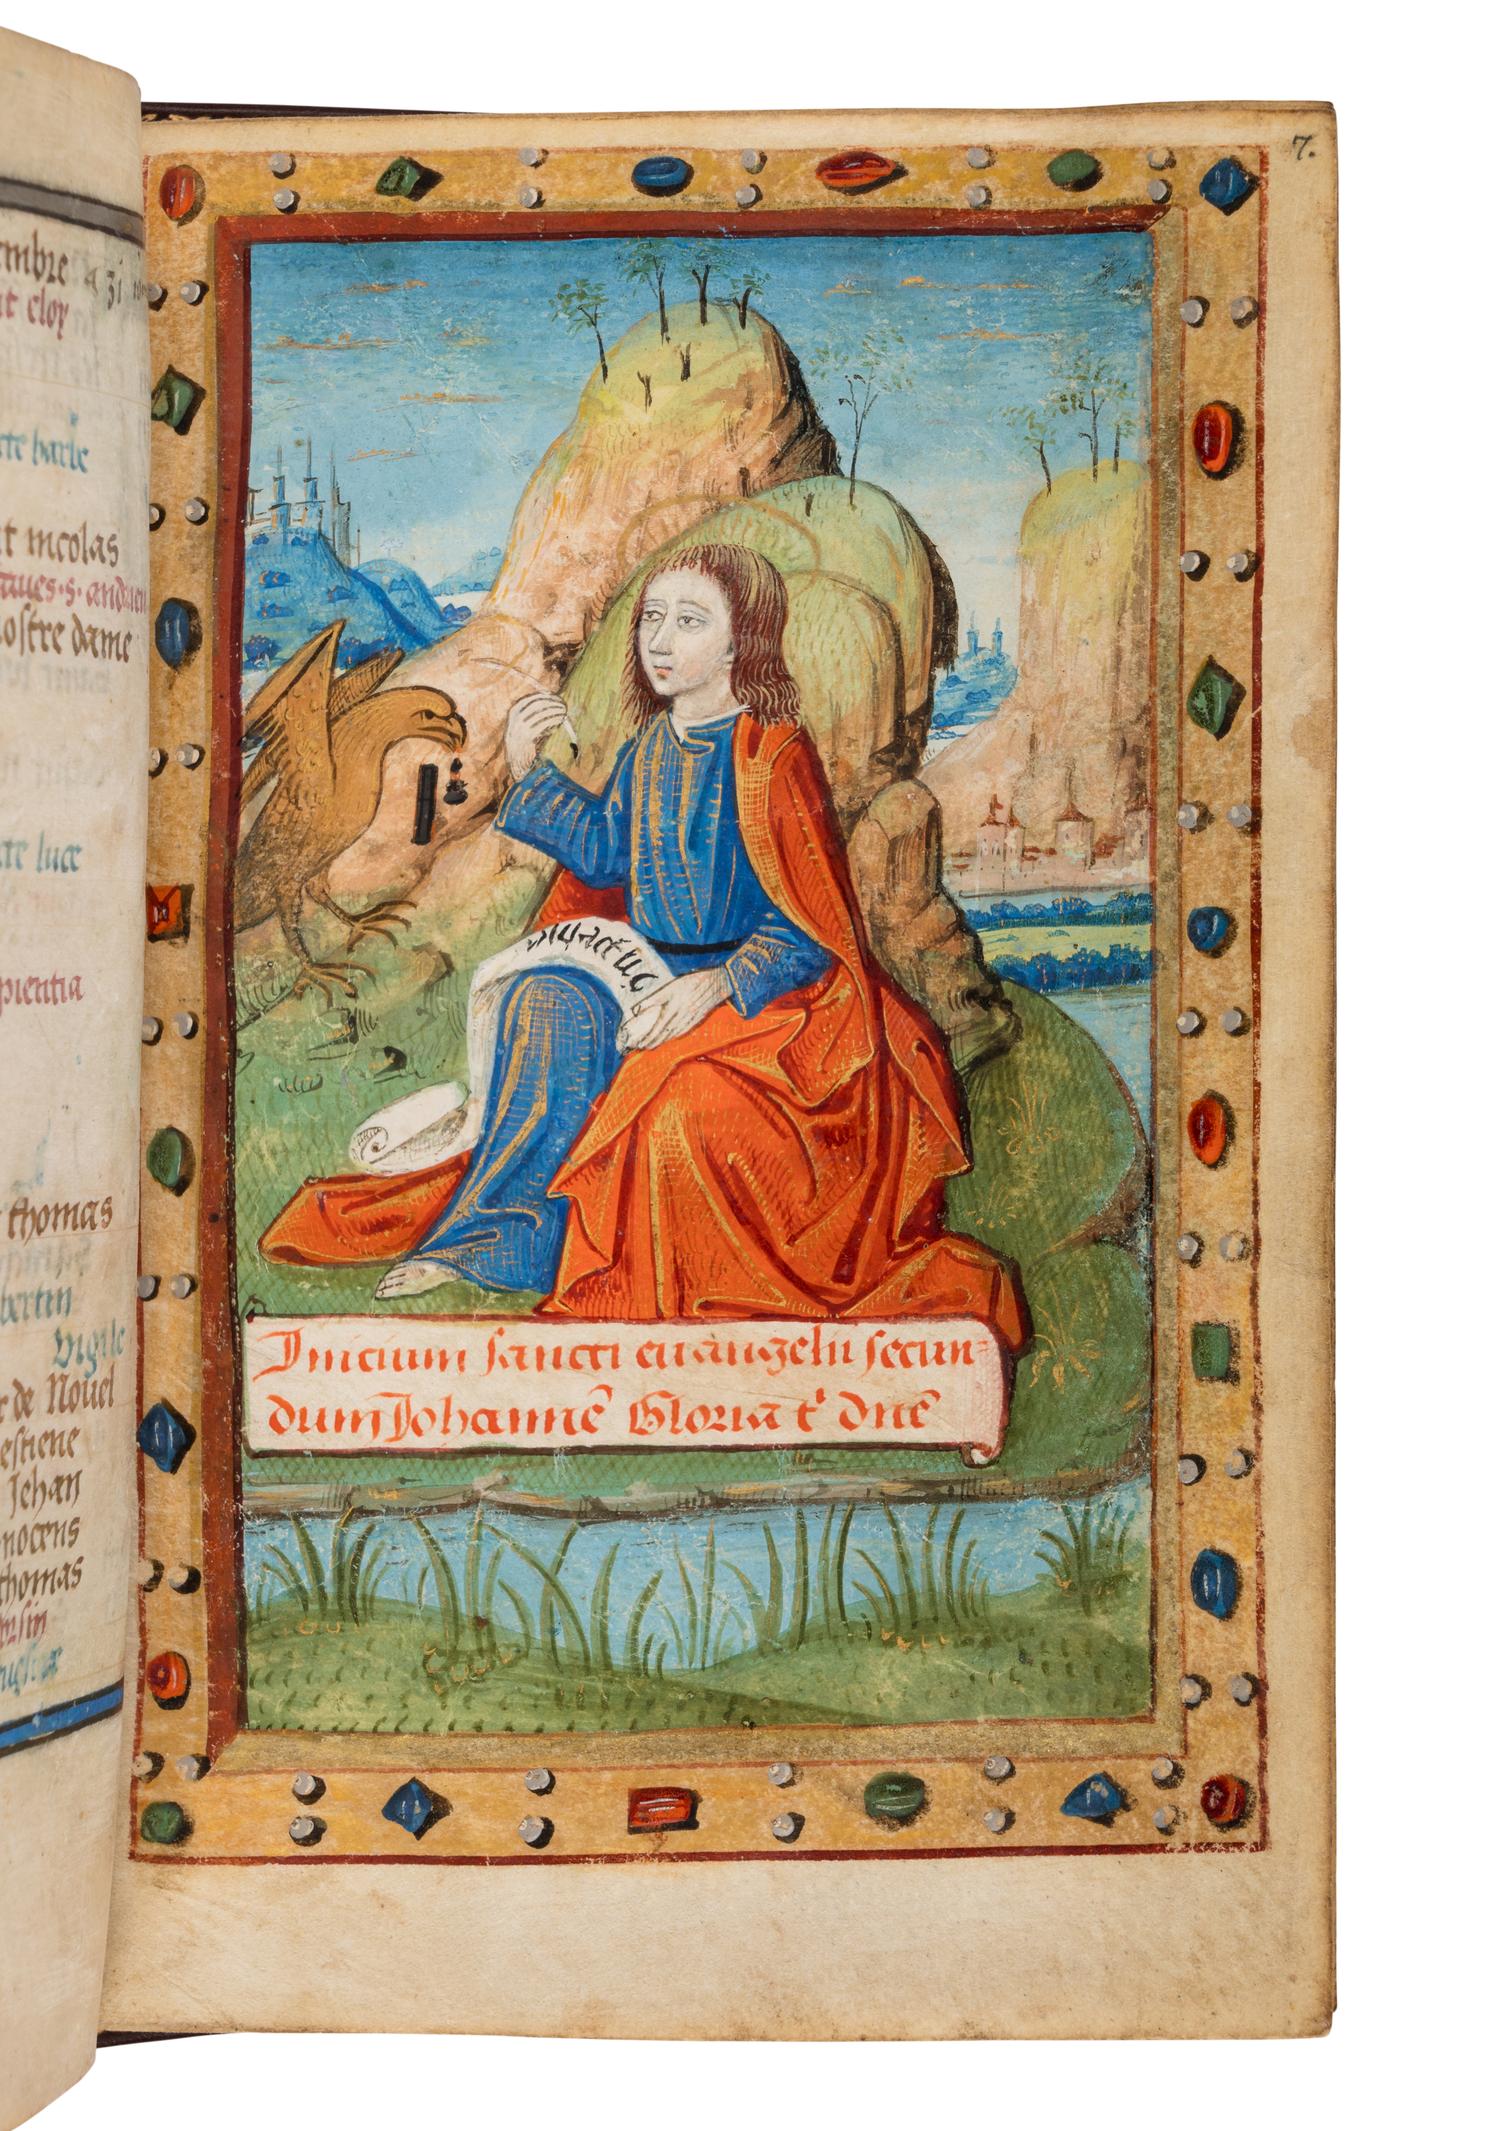 mbre
t eloy
te barbe
t nicolas
nostre dame
te luce
pientia
thomas
bertin
vigile
de Nouel
estiene
Jehan
nocens
thomas
7.
Inicium sancti euangelii secun=
dum Johannē Gloria t' dn̄e